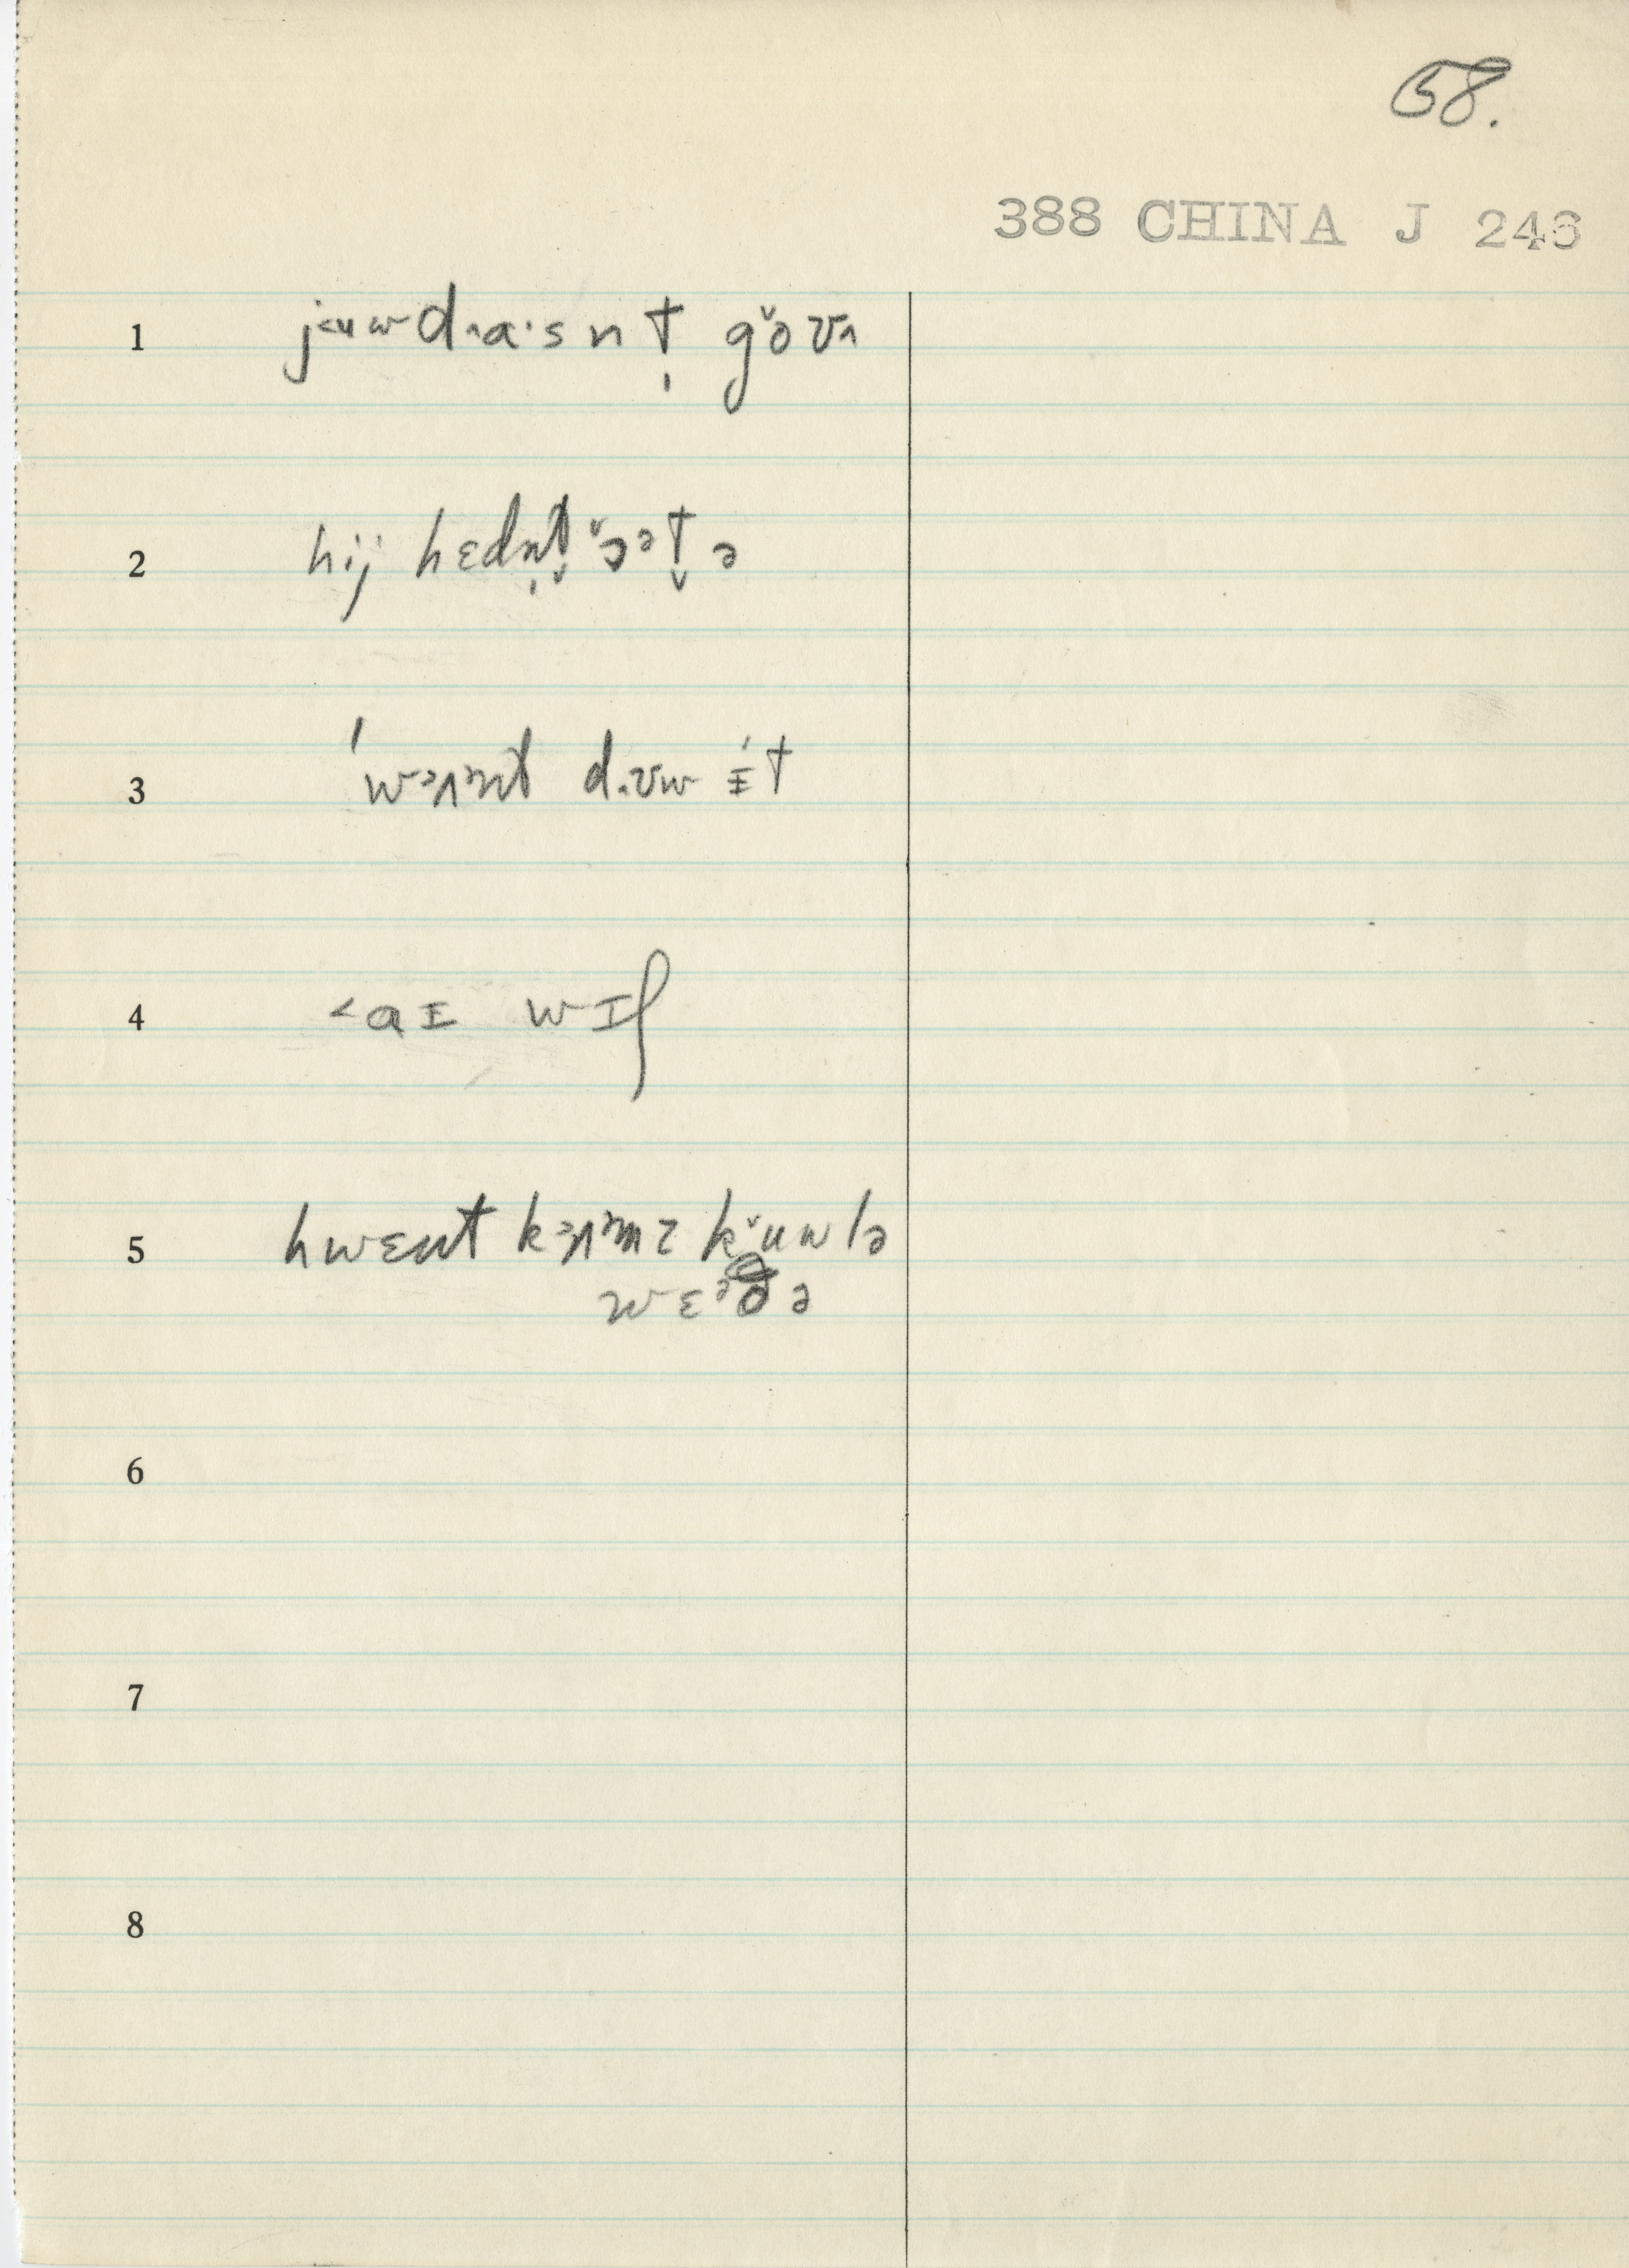 58.
388 CHINA J 246
1 j˂uwd˄a·snt̩ g˅oʊ˄
2 hij hɛdn̩t̬ ˅ɔᵊt̬ə
3 ˈwɔʌnt d˄ʊw ɪ́t
4 ˂aɪ wɪʃ
5 hwɛnt kɔʌmz k˅uwlə
wɛᵊðə
6
7
8